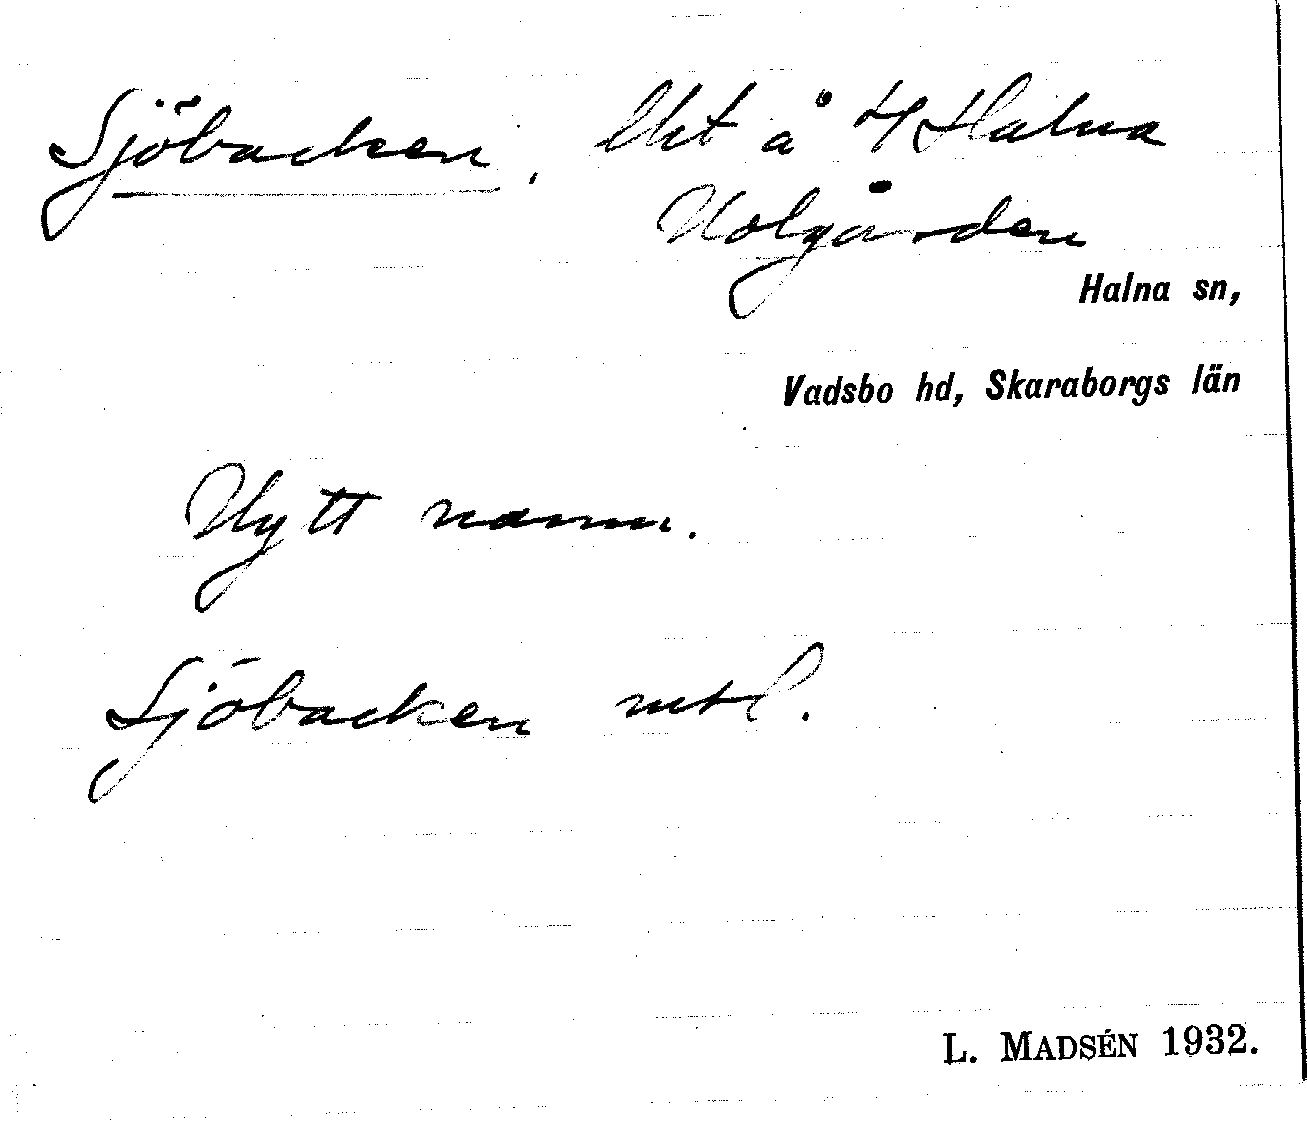 Sjöbacken, Uht å 4 Halna
Nolgården
Halna sn,
Vadsbo hd, Skaraborgs län
Nytt namn.
Sjöbacken mtl.
L. MADSÉN 1932.